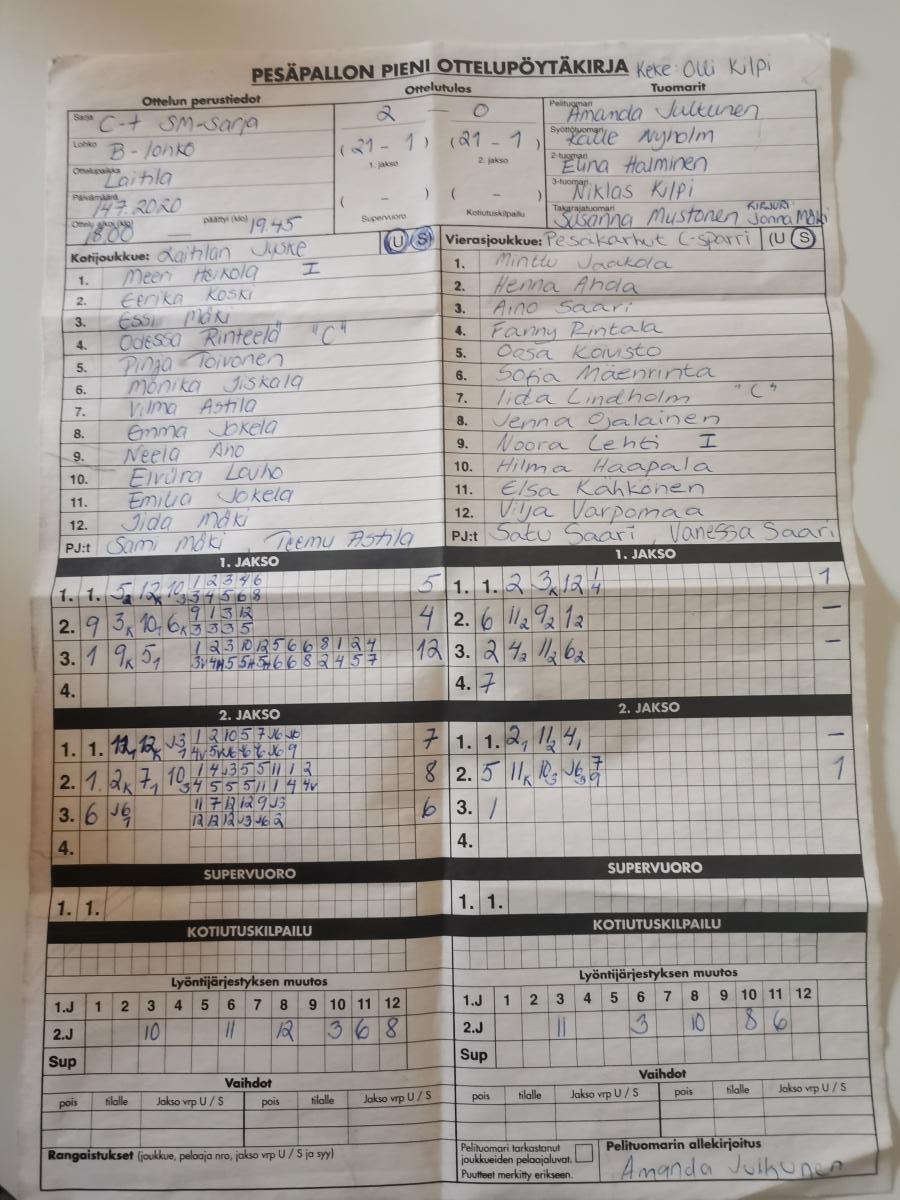 PESÄPALLON PIENI OTTELUPÖYTÄKIRJA Keke: Olli Kilpi
Ottelun perustiedot Ottelutulos Tuomarit
Sarja C-t SM-sarja
Lohko B-lohko
Ottelupaikka Laitila
Päivämäärä 14.7.2020
Ottelu alkoi (klo) 18.00 päättyi (klo) 19.45
2 — 0
(21 - 1) (21 - 1)
1. jakso 2. jakso
( - ) ( - )
Supervuoro Kotiutuskilpailu
Pelituomari Amanda Jultunen
Syöttötuomari Kalle Nyholm
2-tuomari Elina Halminen
3-tuomari Niklas Kilpi
Takarajatuomari Susanna Mustonen KIRJURI: Jonna Mäki
Kotijoukkue: Laitilan Jyske (U S)
1. Meeri Heikola I
2. Eerika Koski
3. Essi Mäki
4. Odessa Rinteelä "C"
5. Pinja Toivonen
6. Mónika Jiskala
7. Vilma Astila
8. Emma Jokela
9. Neela Aho
10. Lauho
11. Emilia Jokela
12. Iida Mäki
PJ:t Sami Mäki, Teemu Astila
Vierasjoukkue: Pesäkarhut C-sparri (U S)
1. Minttu Jaakola
2. Henna Ahda
3. Aino Saari
4. Fanny Rintala
5. Oosa Koivisto
6. Sofia Mäenrinta
7. Iida Lindholm "C"
8. Jenna Ojalainen
9. Noora Lehti I
10. Hilma Haapala
11. Elsa Kähkönen
12. Vilja Varpomaa
PJ:t Satu Saari, Vanessa Saari
1. JAKSO
1. 1. 5 12 10 1 2 3 4 6 5
3 4 5 6 8
2. 9 3 10 6 9 1 3 12 4
3 3 3 5
3. 1 9 5 1 2 3 10 12 5 6 6 8 1 2 4 12
4.
1. JAKSO
1. 1. 2 3 12 1 1
4
2. 6 11 9 1 —
3. 2 4 11 6 —
4. 7
2. JAKSO
1. 1. 7
2. 1 2 7 10 8
3. 6 11 7 12 12 9 6
4.
2. JAKSO
1. 1. 2 11 4 —
2. 5 11 10 7 1
9
3. 1
4.
SUPERVUORO
1. 1.
SUPERVUORO
1. 1.
KOTIUTUSKILPAILU
KOTIUTUSKILPAILU
Lyöntijärjestyksen muutos
1.J 1 2 3 4 5 6 7 8 9 10 11 12
2.J 10 11 12 3 6 8
Sup
Lyöntijärjestyksen muutos
1.J 1 2 3 4 5 6 7 8 9 10 11 12
2.J 11 3 10 8 6
Sup
Vaihdot
pois tilalle Jakso vrp U / S pois tilalle Jakso vrp U / S
Vaihdot
pois tilalle Jakso vrp U / S pois tilalle Jakso vrp U / S
Rangaistukset (joukkue, pelaaja nro, jakso vrp U / S ja syy)
Pelituomari tarkastanut
joukkueiden pelaajaluvat.
Puutteet merkitty erikseen.
Pelituomarin allekirjoitus
Amanda Jultunen